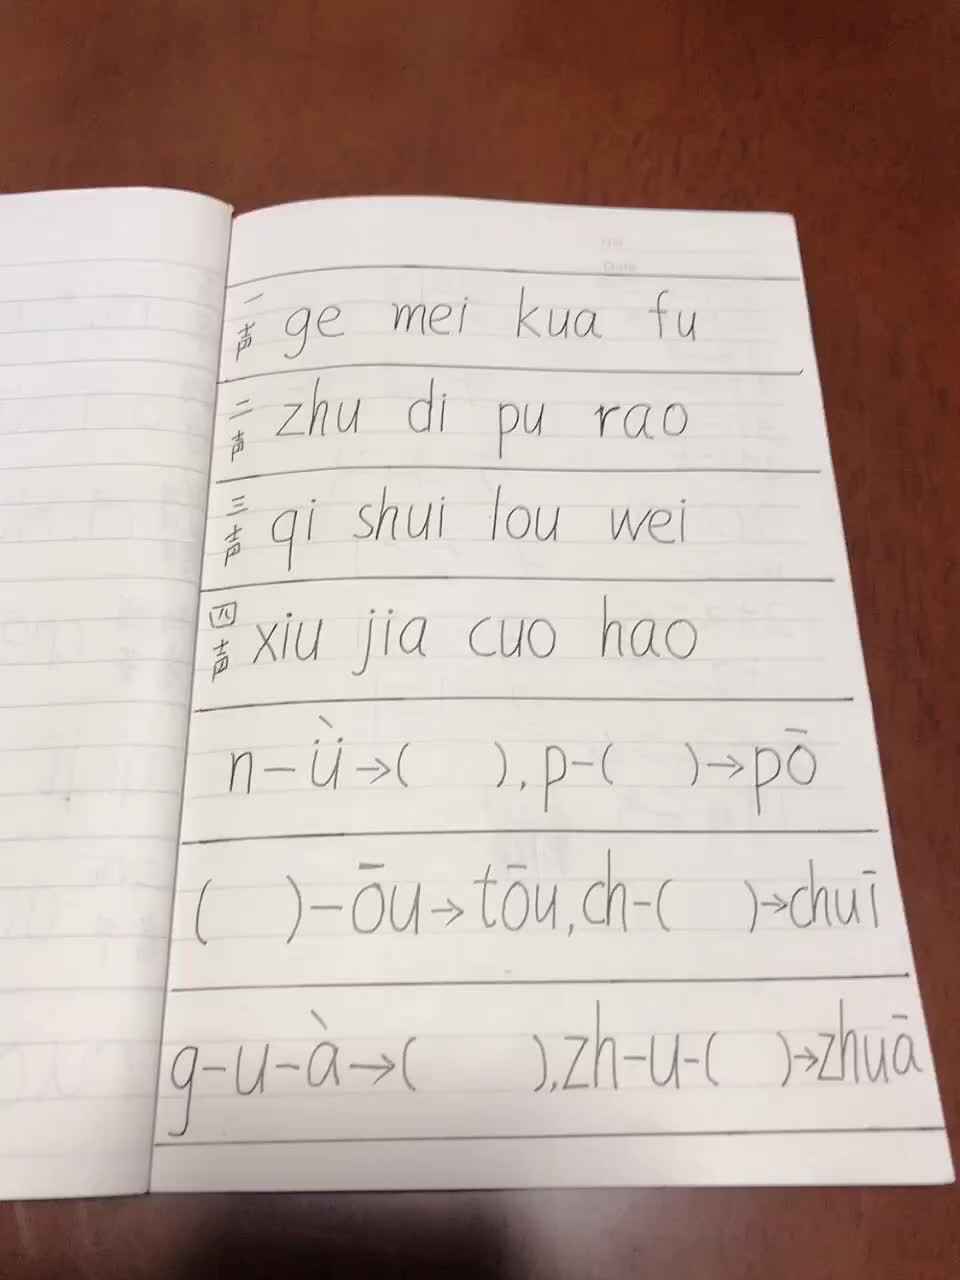 No.
Date
一声 ge mei kua fu
二声 zhu di pu rao
三声 qi shui lou wei
四声 xiu jia cuo hao
n-ǜ→( ),p-( )→pō
( )-ōu→tōu,ch-( )→chuī
g-u-à→( ),zh-u-( )→zhuā